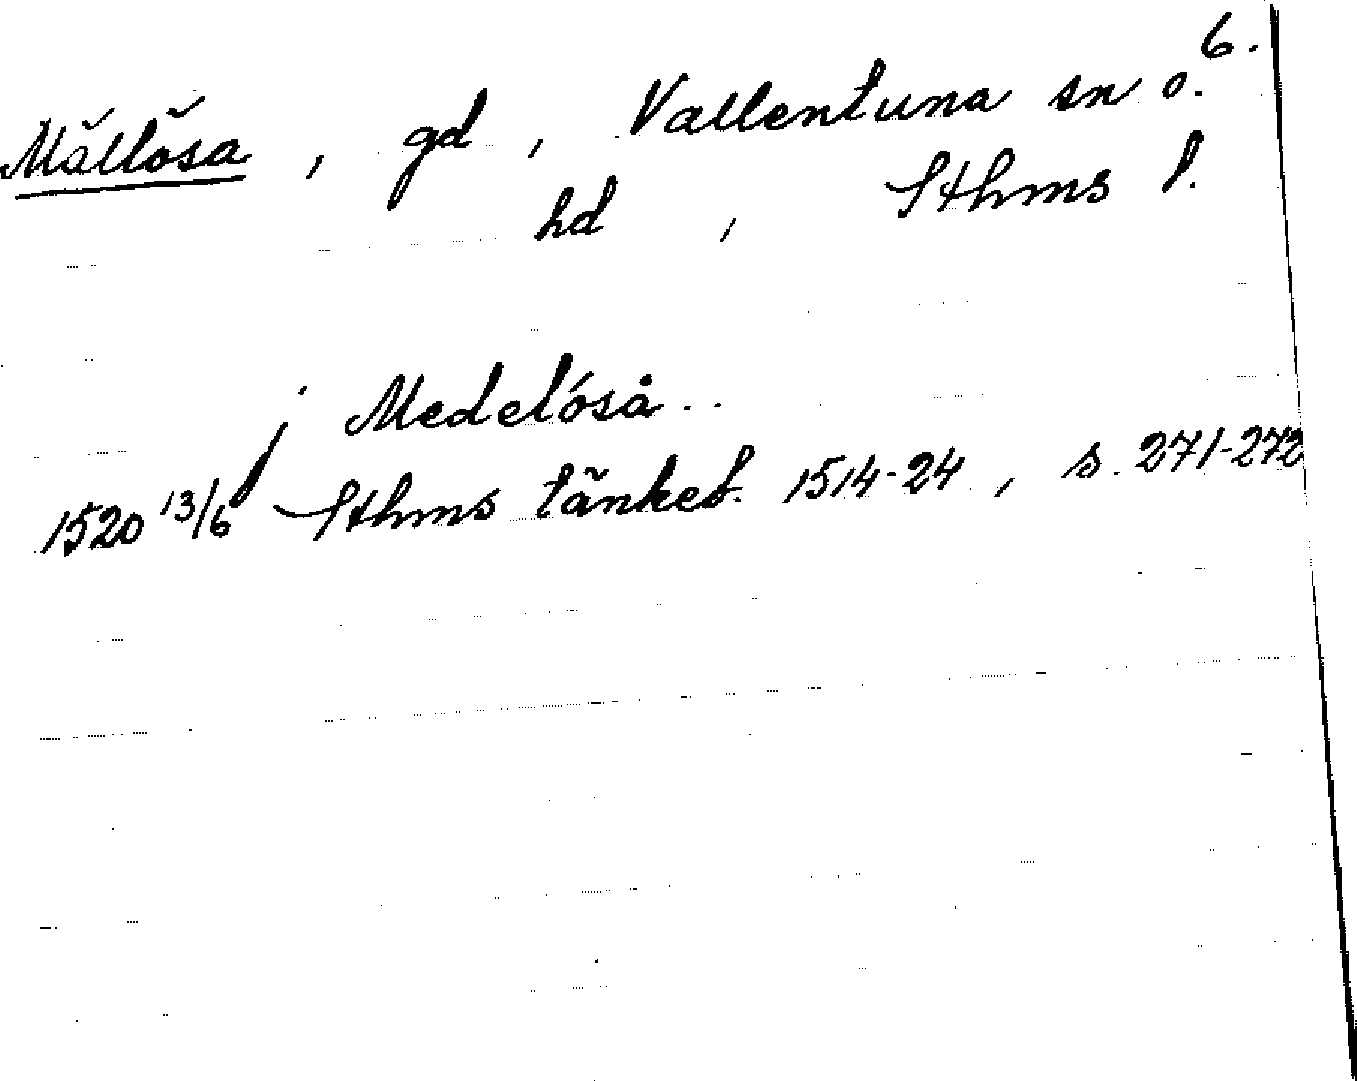 6.
Mällösa, gd, Vallentuna sn o.
hd, Sthms l.
j Medelöså..
1520 13/6 Sthms tänkeb. 1514-24, s. 271-272